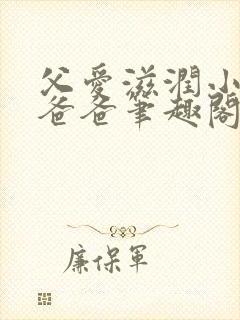 父愛滋潤小
爸爸筆趣閣
廉保軍